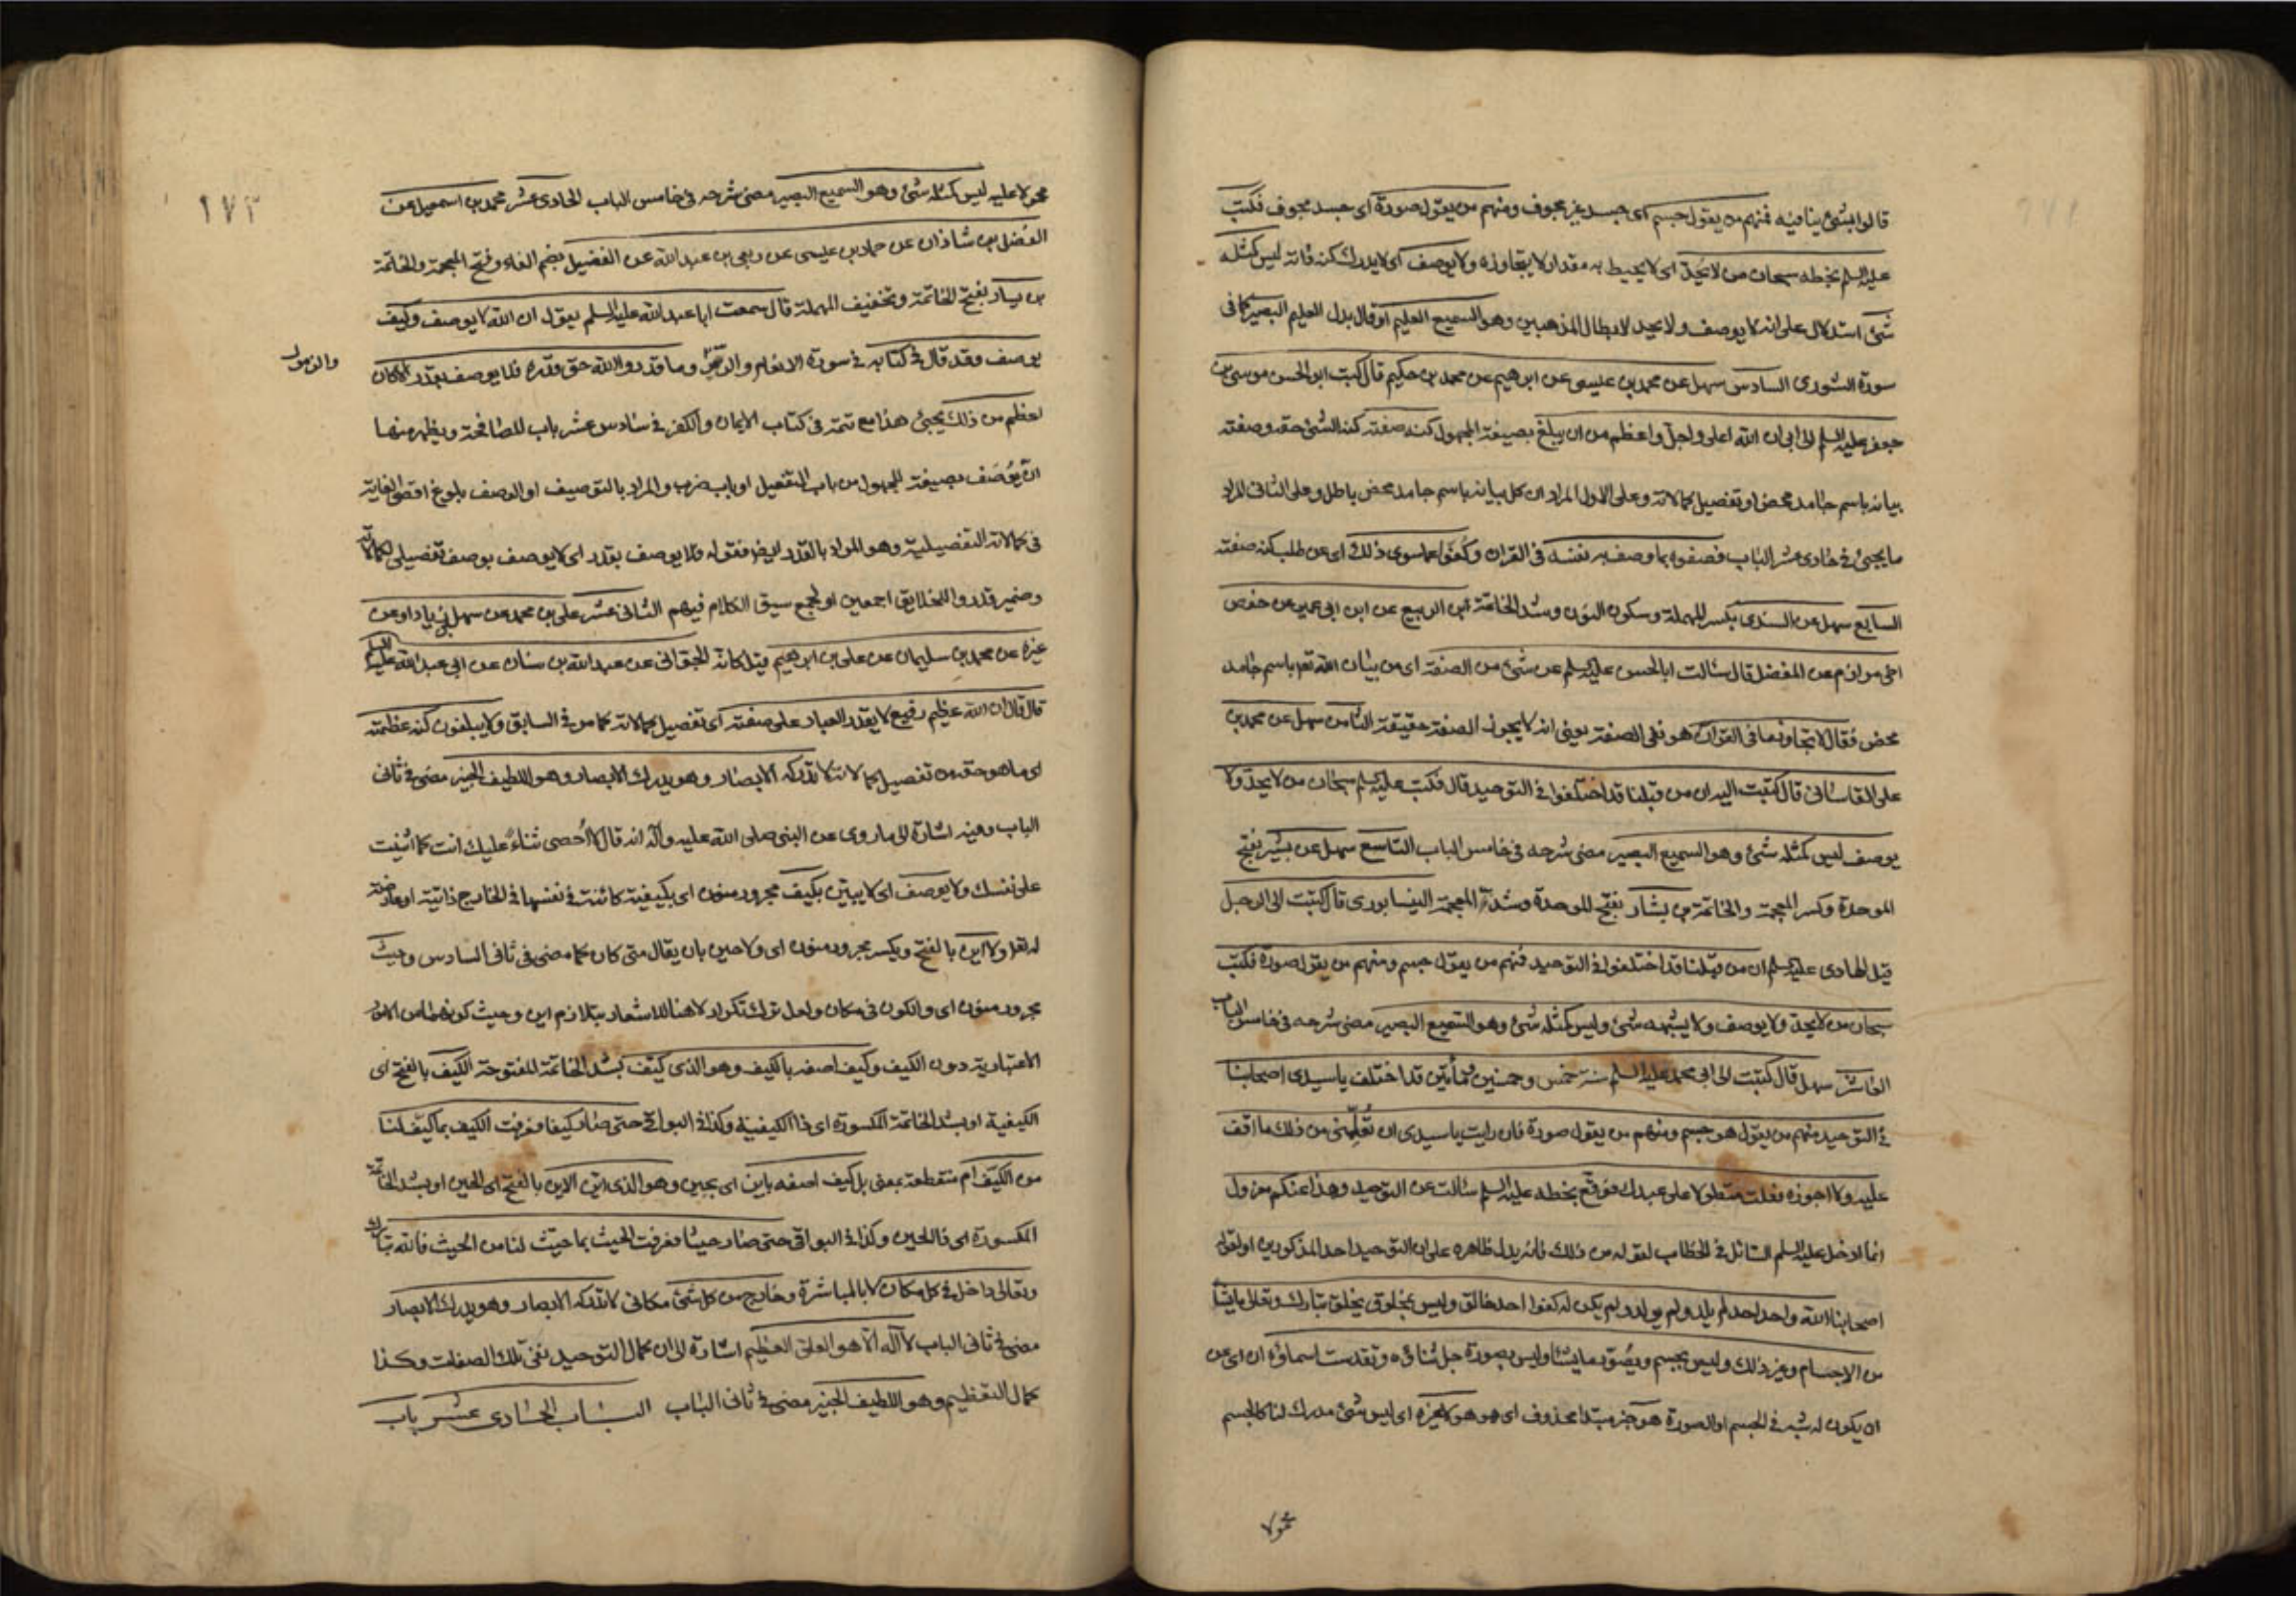 قالوا بشئ ينافيه فمنهم من يقول جسم اى جسد غير مجوف ومنهم من يقول صورة اى جسد مجوف فكتب
عليه السلم بخطه سبحان من لا يُحدّ اى لا يحيط به مقدار لا يتجاوزه ولا يوصف اى لا يدرك كنه ذاته ليس كمثله
شئ استدلال على انه لا يوصف ولا يحد لابطال المذهبين وهو السميع العليم او قال بدل العليم البصير كما فى
سورة الشورى السادس سهل عن محمد بن عيسى عن ابرهيم عن محمد بن حكيم قال كتب ابو الحسن موسى بن
جعفر عليه السلم الى ابى ان الله اعلى واجل واعظم من ان يبلغ بصيغة المجهول كنه صفته كنه الشئ حقه وصفته
بيانه باسم جامد محض او تفصيل كمالاته وعلى الاول المراد ان كل بيانه باسم جامد محض باطل وعلى الثانى المراد
ما يجيئ فى حادى عشر الباب فصفوه بما وصف به نفسه فى القران وكُفّوا عما سوى ذلك اى عن طلب كنه صفته
السابع سهل عن السندى بكسر المهملة وسكون النون وشد الخاتمة ابن الربيع عن ابن ابى عمير عن حفص
اخى مرازم عن المفضل قال سالت ابا الحسن عليه السلم عن شئ من الصفة اى من بيان الله تعر باسم جامد
محض فقال لا تجاوز ما فى القران هو نفى الصفة يعنى انه لا يجوز الصفة حقيقة الثامن سهل عن محمد بن
على القاسانى قال كتبت اليه ان من قبلنا قد اختلفوا فى التوحيد قال فكتب عليه السلم سبحان من لا يحدّ ولا
يوصف ليس كمثله شئ وهو السميع البصير مضى شرحه فى خامس الباب التاسع سهل عن بشير بفتح
الموحدة وكسر المعجمة والخاتمة بن بشار بفتح الموحدة وشد المعجمة النيسابورى قال كتبت الى الرجل
قيل الهادى عليه السلم ان من قبلنا قد اختلفوا فى التوحيد فمنهم من يقول جسم ومنهم من يقول صورة فكتب
سبحان من لا يحدّ ولا يوصف ولا يشبهه شئ وليس كمثله شئ وهو السميع البصير مضى شرحه فى خامس الباب
العاشر سهل قال كتبت الى ابى محمد عليه السلم سنة خمس وخمسين ومأتين قد اختلف يا سيدى اصحابنا
فى التوحيد منهم من يقول هو جسم ومنهم من يقول صورة فان رايت يا سيدى ان تُعلّمنى من ذلك ما اقف
عليه ولا اجوزه فعلت متطولا على عبدك فوقع بخطه عليه السلم سالت عن التوحيد وهذا عنكم معزول
انما ادخل عليه السلم السائل فى الخطاب لقوله من ذلك فانه يدل ظاهره على ان التوحيد احد المذكورين او لقوله
اصحابنا الله واحد احد لم يلد ولم يولد ولم يكن له كفوا احد خالق وليس بمخلوق يخلق تبارك وتعالى ما يشا
من الاجسام وغير ذلك وليس بجسم ويُصوّر ما يشا وليس بصورة جل ثناؤه وتقدست اسماؤه ان اى عن
ان يكون له شبه فى الجسم او الصورة هو خبر مبتدا محذوف اى هو هو لا غيره اى ليس شئ مدرك لنا كالجسم
محمولا
١٧٣
محمولا عليه ليس كمثله شئ وهو السميع البصير مضى شرحه فى خامس الباب الحادى عشر محمد بن اسمعيل عن
الفضل بن شاذان عن حماد بن عيسى عن ربعى بن عبد الله عن الفضيل بضم الفاء وفتح المعجمة والخاتمة
بن يسار بفتح الخاتمة وتخفيف المهملة قال سمعت ابا عبد الله عليه السلم يقول ان الله لا يوصف وكيف
يوصف وقد قال فى كتابه فى سورة الانعام والحج وما قدروا الله حق قدره فلا يوصف بقدر الا كان
والزمر
اعظم من ذلك يجيئ هذا مع تتمة فى كتاب الايمان والكفر فى سادس عشر باب المصافحة ويظهر منها
ان يُوصَف بصيغة المجهول من باب التفعيل او باب ضرب والمراد بالتوصيف او الوصف بلوغ اقصى الغاية
فى كمالاته التفصيلية وهو المراد بالقدر ايض فقوله فلا يوصف بقدر اى لا يوصف بوصف تفصيلى لكمالاته
وضمير قدروا للخلايق اجمعين او لجمع سيق الكلام فيهم الثانى عشر على بن محمد عن سهل بن زياد او عن
غيره عن محمد بن سليمان عن على بن ابرهيم قيل كانه الجعفرانى عن عبد الله بن سنان عن ابى عبد الله عليه السلم
قال قال ان الله عظيم رفيع لا يقدر العباد على صفته اى تفصيل كمالاته كما مر فى السابق ولا يبلغون كنه عظمته
اى ما هو حقه من تفصيل كمالاته لا تدركه الابصار وهو يدرك الابصار وهو اللطيف الخبير مضى فى ثانى
الباب وفيه اشارة الى ما روى عن النبى صلى الله عليه وآله انه قال لا اُحصى ثناءً عليك انت كما اثنيت
على نفسك ولا يوصف اى لا يبين بكيف مجرور منون اى بكيفية كائنة فى نفسها فى الخارج ذاتية او عارضة
له تعر ولا اين بالفتح ويكسر مجرور منون اى ولا حين بان يقال متى كان كما مضى فى ثانى السادس وحيث
مجرور منون اى والكون فى مكان ولعل ترك تكرار لا هنا للاشعار بتلازم اين وحيث كونهما من الامور
الاعتبارية دون الكيف وكيف اصفه بالكيف وهو الذى كيّف بشد الخاتمة المفتوحة الكيف بالفتح اى
الكيفية او بشد الخاتمة المكسورة اى ذا الكيفية وكذا فى البواقى حتى صار كيفا فعرفت الكيف بما كيّف لنا
من الكيف ام منقطعة بمعنى بل كيف اصفه باين اى بحين وهو الذى اين الاين بالفتح اى الحين او بشد الخاتمة
المكسورة اى ذا الحين وكذا فى البواقى حتى صار حيثا فعرفت الحيث بما حيّث لنا من الحيث فالله تبارك
وتعالى داخل فى كل مكان لا بالمباشرة وخارج من كل شئ مكانى لا تدركه الابصار وهو يدرك الابصار
مضى فى ثانى الباب لا آله الا هو العلى العظيم اشارة الى ان كمال التوحيد نفى تلك الصفات وكذا
كمال التعظيم وهو اللطيف الخبير مضى فى ثانى الباب الباب الحادى عشر باب